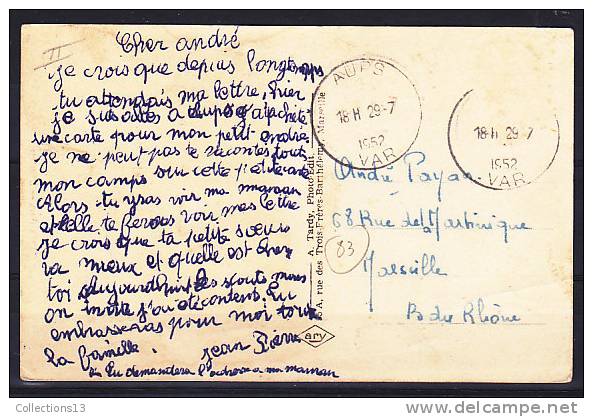 Cher andré
je crois que depuis longtemps
tu attendais ma lettre, hier
je suis allés a aups j'ai acheté
une carte pour mon petit andré
je ne peut pas te racontés tout
mon camps sur cette petite carte
Alors tu iras voir ma maman
et elle te feras voir mes lettre
je crois que ta petite soeur
va mieux et quelle est chez
toi aujourd'hui les scouts nous
on invité j'ai été content. tu
embrasseras pour moi toute
la famille.
jean Pierre
tu demandera l'adresse a ma maman
A. Tardy, Photo-Edit.
8 A, rue des Trois-Frères-Barthélemy, Marseille
ary
AUPS
18 H 29-7
1952
VAR
18 H 29-7
1952
VAR
André Payan
68 Rue de la Martinique
Marseille
B du Rhône
83
Collections13
delcampe.net